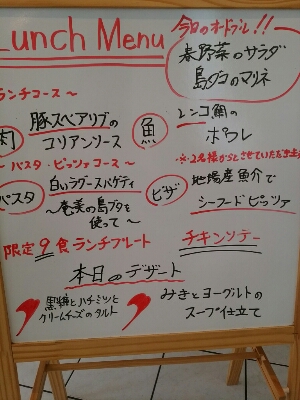 Lunch Menu
今日のオードブル!!
春野菜のサラダ
島ダコのマリネ
ランチコース〜
肉
豚スペアリブの
コリアンソース
魚
レンコ鯛の
ポワレ
〜パスタ・ピッツァコース〜
※2名様からとさせていただきま
パスタ
白いラグースパゲティ
〜奄美の島ブタを
使って〜
ピザ
地場産魚介で
シーフードピッツァ
限定9食ランチプレート
チキンソテー
本日のデザート
黒糖とハチミツと
クリームチーズのタルト
みきとヨーグルトの
スープ仕立て